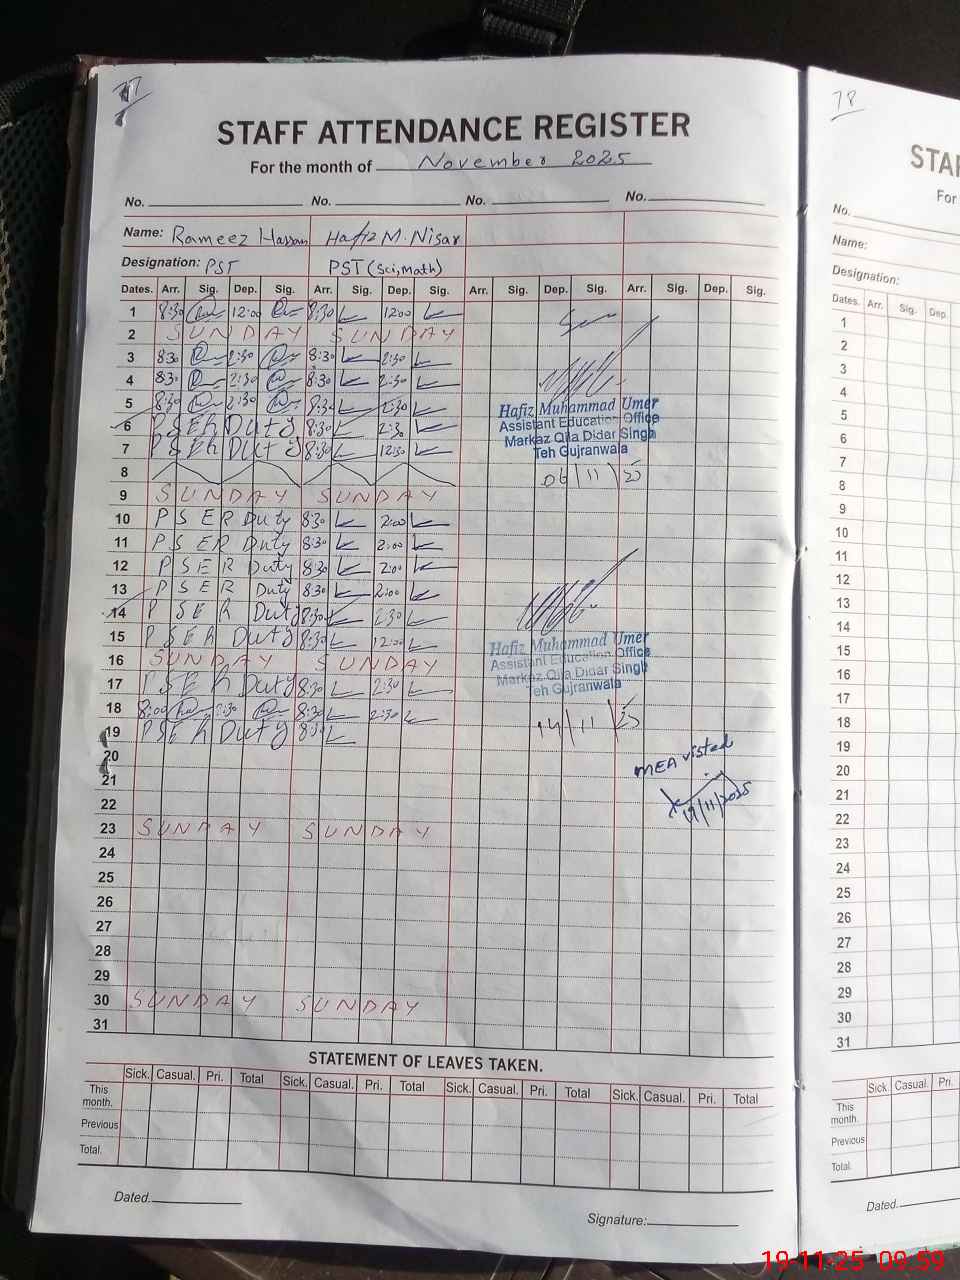 77
STAFF ATTENDANCE REGISTER
For the month of November 2025
No. No. No. No.
Name: Rameez Hassan Hafiz M. Nisar
Designation: PST PST (Sci, Math)
Dates. Arr. Sig. Dep. Sig. Arr. Sig. Dep. Sig. Arr. Sig. Dep. Sig. Arr. Sig. Dep. Sig.
1 8:30 12:00 8:30 12:00
2 SUNDAY SUNDAY
3 8:30 2:30 8:30 2:30
4 8:30 2:30 8:30 2:30
5 8:30 2:30 8:30 2:30
6 PSER Duty 8:30 2:30
7 PSER Duty 8:30 12:30
8
9 SUNDAY SUNDAY
10 PSER Duty 8:30 2:00
11 PSER Duty 8:30 2:00
12 PSER Duty 8:30 2:00
13 PSER Duty 8:30 2:00
14 PSER Duty 8:30 2:30
15 PSER Duty 8:30 12:00
16 SUNDAY SUNDAY
17 PSER Duty 8:30 2:30
18 8:00 2:30 8:30 2:30
19 PSER Duty 8:30
20
21
22
23 SUNDAY SUNDAY
24
25
26
27
28
29
30 SUNDAY SUNDAY
31
Hafiz Muhammad Umer
Assistant Education Office
Markaz Qila Didar Singh
Teh Gujranwala
06/11/25
Hafiz Muhammad Umer
Assistant Education Office
Markaz Qila Didar Singh
Teh Gujranwala
14/11/25
MEA visted
19/11/2025
STATEMENT OF LEAVES TAKEN.
Sick. Casual. Pri. Total Sick. Casual. Pri. Total Sick. Casual. Pri. Total Sick. Casual. Pri. Total
This month.
Previous
Total.
Dated.
Signature:
78
STAF
For
No.
Name:
Designation:
Dates. Arr. Sig. Dep.
1
2
3
4
5
6
7
8
9
10
11
12
13
14
15
16
17
18
19
20
21
22
23
24
25
26
27
28
29
30
31
Sick. Casual. Pri.
This month.
Previous
Total.
Dated.
19-11-25 09:59